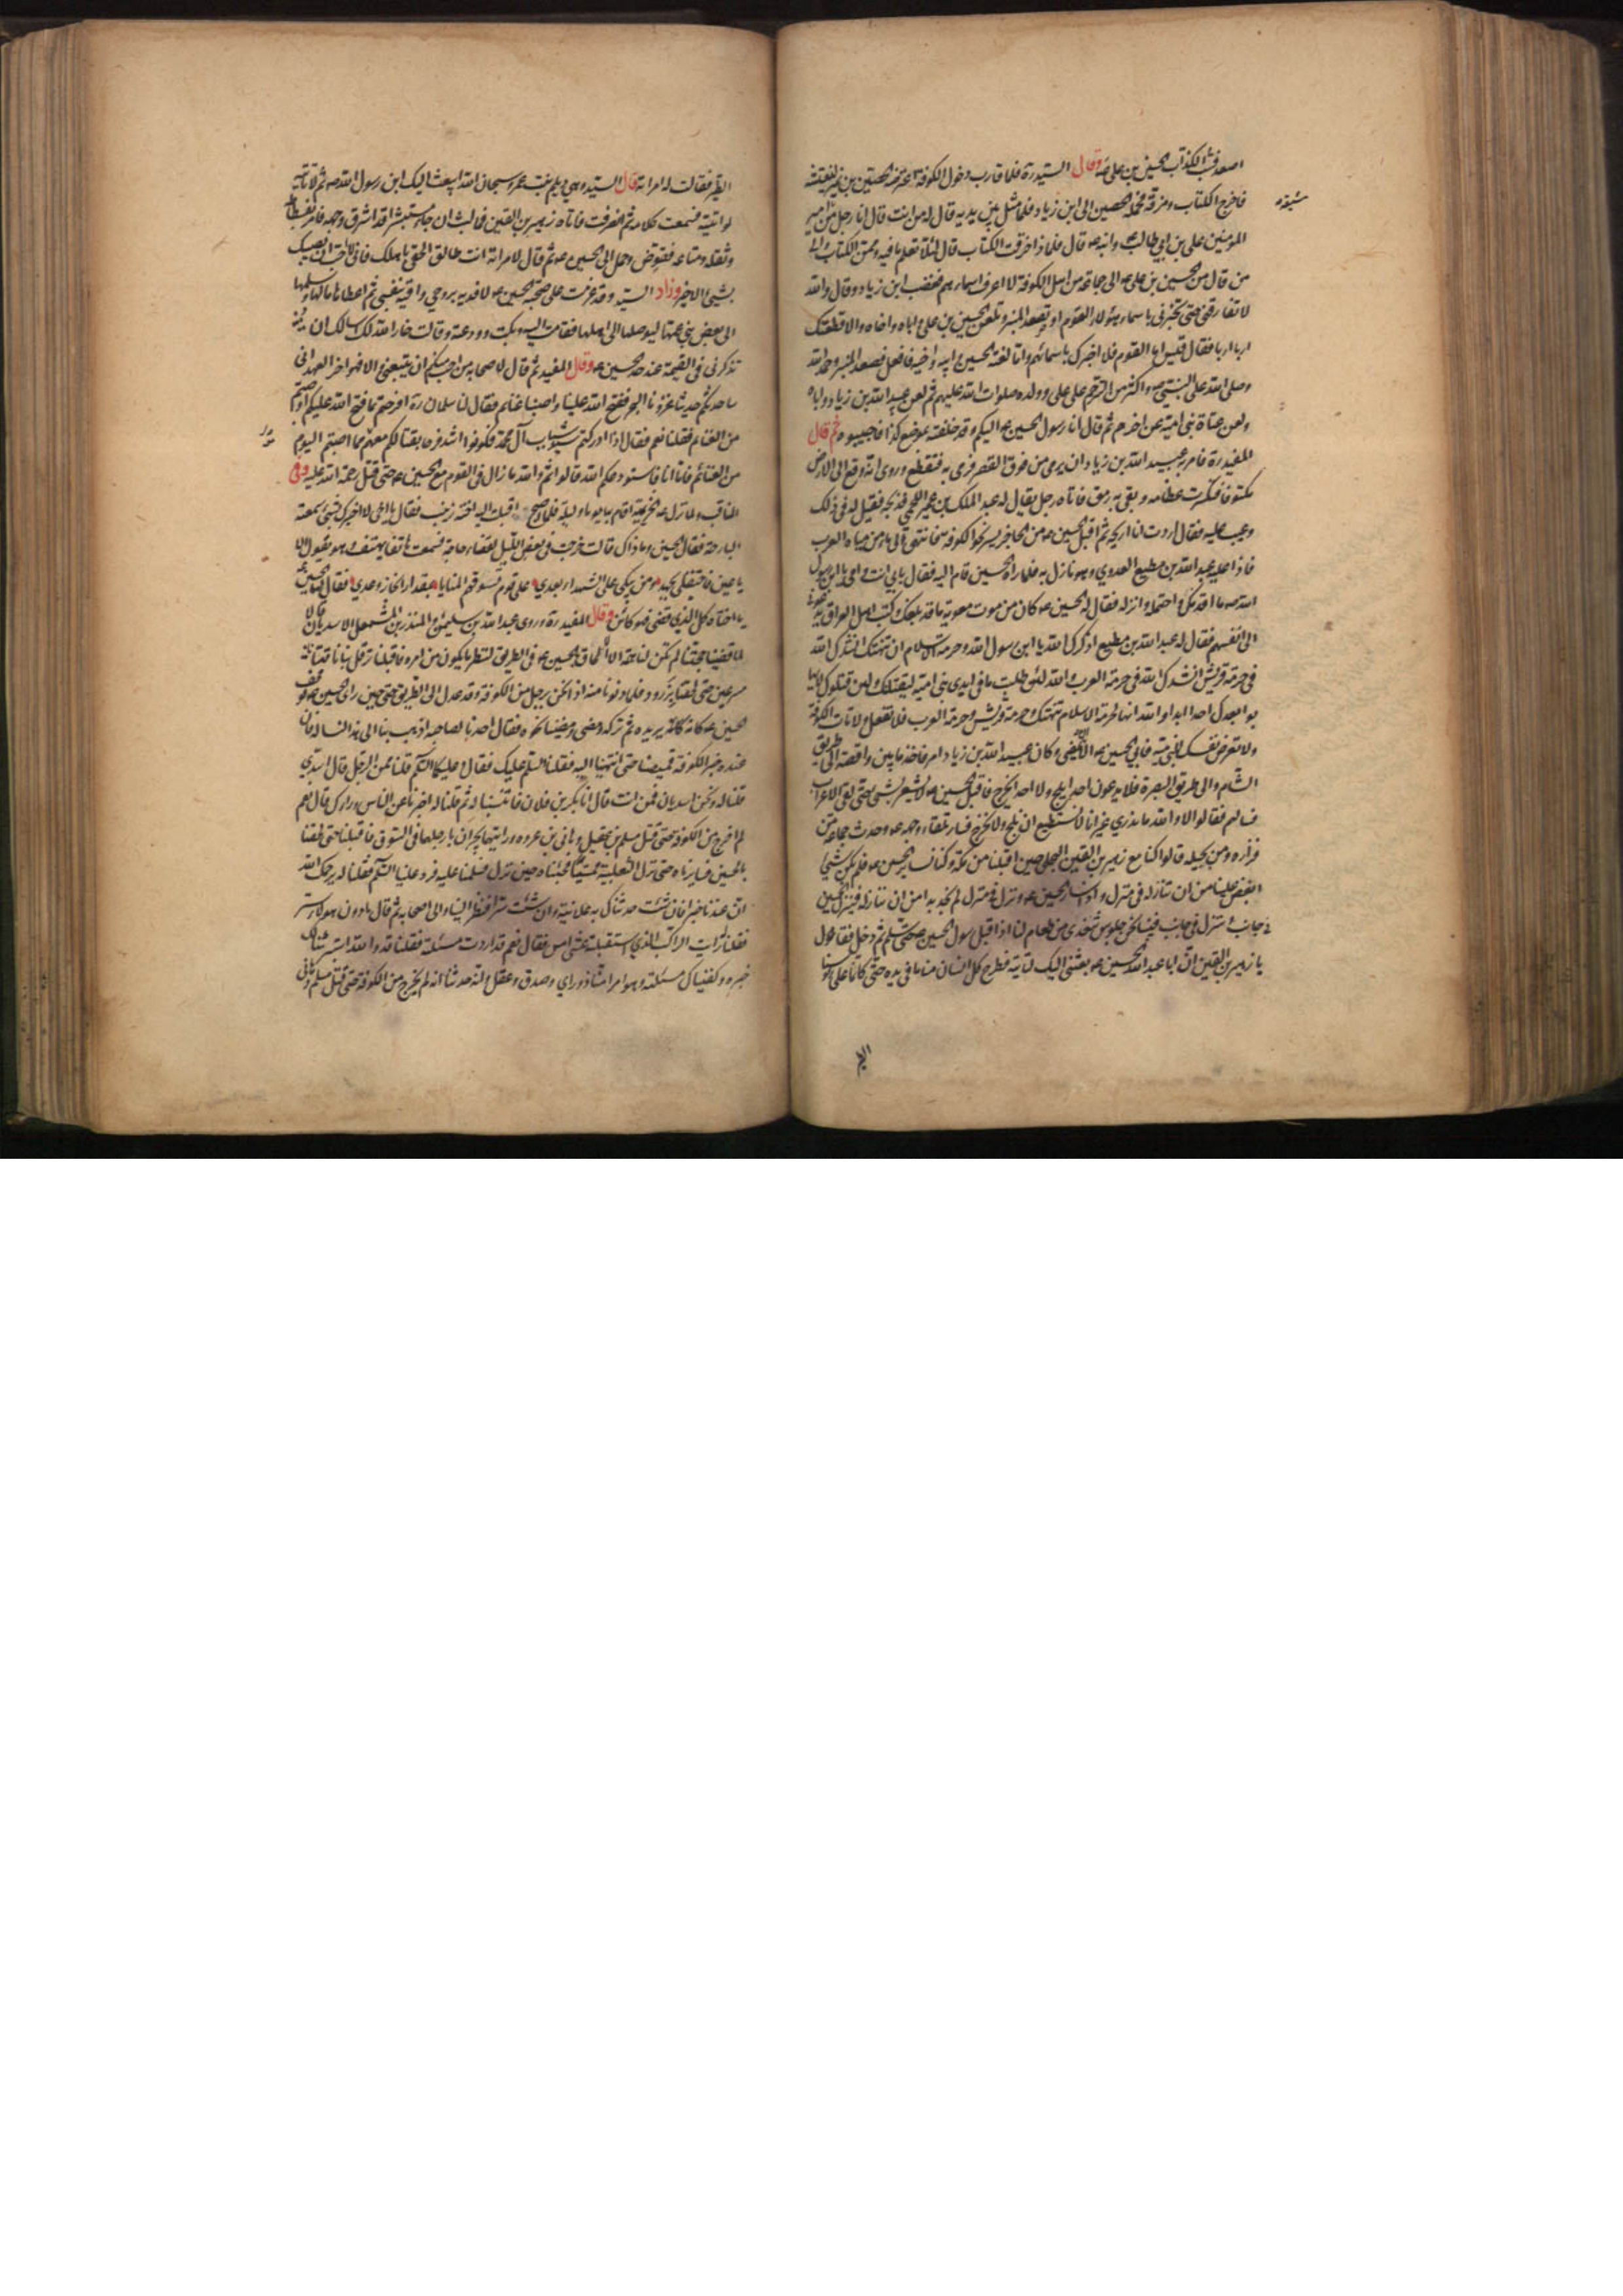 اصعد فسب الكذاب الحسين بن علي وقال السيد ره فلما قارب دخول الكوفة اعترضه الحصين بن نمير ليفتشه
فاخرج الكتاب ومزقه فحمله الحصين الى ابن زياد فلما مثل بين يديه قال له من انت قال انا رجل من شيعة امير
المؤمنين علي بن ابي طالب وابنه ع قال فلماذا خرقت الكتاب قال لئلا تعلم ما فيه وممن الكتاب والى
من قال من الحسين بن علي ع الى جماعة من اهل الكوفة لا اعرف اسماءهم فغضب ابن زياد وقال والله
لا تفارقني حتى تخبرني باسماء هؤلاء القوم او تصعد المنبر وتلعن الحسين بن علي واباه واخاه والا قطعتك
اربا اربا فقال قيس اما القوم فلا اخبرك باسمائهم واما لعنة الحسين وابيه واخيه فافعل فصعد المنبر وحمد الله
وصلى الله على النبي ص واكثر من الترحم على علي وولده صلوات الله عليهم ثم لعن عبيد الله بن زياد واباه
ولعن عتاة بني امية عن اخرهم ثم قال انا رسول الحسين ع اليكم وقد خلفته بموضع كذا فاجيبوه ثم قال
المفيد ره فامر به عبيد الله بن زياد ان يرمى من فوق القصر فرمي به فتقطع وروي انه وقع الى الارض
مكتوفا فتكسرت عظامه وبقي به رمق فاتاه رجل يقال له عبد الملك بن عمير اللخمي فذبحه فقيل له في ذلك
وعيب عليه فقال اردت ان اريحه ثم اقبل الحسين ع من الحاجر يسير نحو الكوفة فانتهى الى ماء من مياه العرب
فاذا عليه عبد الله بن مطيع العدوي وهو نازل به فلما راه الحسين قام اليه فقال بابي انت وامي يا ابن رسول
الله ص ما اقدمك واحتمله وانزله فقال له الحسين ع كان من موت معوية ما قد بلغك وكتب اهل العراق يدعونني
الى انفسهم فقال له عبد الله بن مطيع اذكرك الله يا ابن رسول الله وحرمة الاسلام ان تنتهك انشدك الله
في حرمة قريش انشدك الله في حرمة العرب والله لئن طلبت ما في ايدي بني امية ليقتلنك ولئن قتلوك لا يها
بوا بعدك احدا ابدا والله انها لحرمة الاسلام تنتهك وحرمة قريش وحرمة العرب فلا تفعل ولا تات الكوفة
ولا تعرض نفسك لبني امية فابى الحسين ع الا ان يمضي وكان عبيد الله بن زياد امر فاخذ ما بين واقصة الى طريق
الشام والى طريق البصرة فلا يدعون احدا يلج ولا احدا يخرج فاقبل الحسين ع لا يشعر بشيء حتى لقي الاعراب
فسالهم فقالوا لا والله ما ندري غير انا لا نستطيع ان نلج ولا نخرج فسار تلقاء وجهه ع وحدث جماعة من
فزاره ومن بجيله قالوا كنا مع زهير بن القين البجلي حين اقبلنا من مكة وكنا نساير الحسين ع فلم يكن شيء
ابغض علينا من ان ننازله في منزل واذا سار الحسين ع ونزل في منزل لم نجد بدا من ان ننازله فينزل الحسين
في جانب وننزل في جانب فبينا نحن جلوس نتغدى من طعام لنا اذ اقبل رسول الحسين ع حتى سلم ثم دخل فقال
يا زهير بن القين ان ابا عبد الله الحسين ع بعثني اليك لتاتيه فطرح كل انسان منا ما في يده حتى كانما على رؤسنا
الطير
الطير فقالت له امراته قال السيد وهي ديلم بنت عمرو سبحان الله ايبعث اليك ابن رسول الله ص ثم لا تاتيه
لو اتيته فسمعت كلامه ثم انصرفت فاتاه زهير بن القين فما لبث ان جاء مستبشرا قد اشرق وجهه فامر بفسطاطه
وثقله ومتاعه فقوض وحمل الى الحسين ع ثم قال لامراته انت طالق الحقي باهلك فاني لا احب ان يصيبك
بسببي الا خير وزاد السيد وقد عزمت على صحبة الحسين ع لافديه بروحي واقيه بنفسي ثم اعطاها مالها وسلمها
الى بعض بني عمها ليوصلها الى اهلها فقامت اليه وبكت وودعته وقالت خار الله لك اسالك ان
تذكرني في القيمة عند جد الحسين ع وقال المفيد ثم قال لاصحابه من احب منكم ان يتبعني والا فهو اخر العهد اني
ساحدثكم حديثا غزونا البحر ففتح الله علينا واصبنا غنائم فقال لنا سلمان ره افرحتم بما فتح الله عليكم واصبتم
من الغنائم فقلنا نعم فقال اذا ادركتم سيد شباب آل محمد فكونوا اشد فرحا بقتالكم معهم مما اصبتم اليوم
من الغنائم فاما انا فاستودعكم الله قالوا ثم والله ما زال في القوم مع الحسين ع حتى قتل رحمة الله عليه وفي
المناقب ولما نزل ع الخزيمية اقام بها يوما وليلة فلما اصبح اقبلت اليه اخته زينب فقالت يا اخي الا اخبرك بشيء سمعته
البارحة فقال الحسين وما ذاك قالت خرجت في بعض الليل لقضاء حاجة فسمعت هاتفا يهتف وهو يقول الا
يا عين فاحتفلي بجهد ومن يبكي على الشهداء بعدي على قوم تسوقهم المنايا بمقدار الى انجاز وعدي فقال لها الحسين ع
يا اختاه كل الذي قضي فهو كائن وقال المفيد ره وروى عبد الله بن سليمن والمنذر بن المشمعل الاسديان قالا
لما قضينا حجنا لم تكن لنا همة الا الحاق بالحسين ع في الطريق لننظر ما يكون من امره فاقبلنا ترقل بنا ناقتانا
مسرعين حتى لحقنا بزرود فلما دنونا منه اذا نحن برجل من الكوفة وقد عدل الى الطريق حتى حين راى الحسين ع فوقف
الحسين ع كانه يريده ثم تركه ومضى ومضينا نحوه فقال احدنا لصاحبه اذهب بنا الى هذا لنساله فان
عنده خبر الكوفة فمضينا حتى انتهينا اليه فقلنا السلم عليك فقال وعليكما السلم قلنا ممن الرجل قال اسدي
قلنا له ونحن اسديان فمن انت قال انا بكر بن فلان فانتسبنا له ثم قلنا له اخبرنا عن الناس وراءك قال نعم
لم اخرج من الكوفة حتى قتل مسلم بن عقيل وهاني بن عروه ورايتهما يجران بارجلهما في السوق فاقبلنا حتى لحقنا
بالحسين فسايرناه حتى نزل الثعلبية ممسيا فجئناه حين نزل فسلمنا عليه فرد علينا السلم فقلنا له يرحمك الله
ان عندنا خبرا فان شئت حدثناك به علانية وان شئت سرا فنظر الينا والى اصحابه ثم قال ما دون هؤلاء ستر
فقلنا ارايت الراكب الذي استقبلته عشي امس فقال نعم قد اردت مسئلته فقلنا قد والله استبرئنا لك
خبره وكفيناك مسئلته وهو امرء منا ذو راي وصدق وعقل وانه حدثنا انه لم يخرج من الكوفة حتى قتل مسلم وهاني